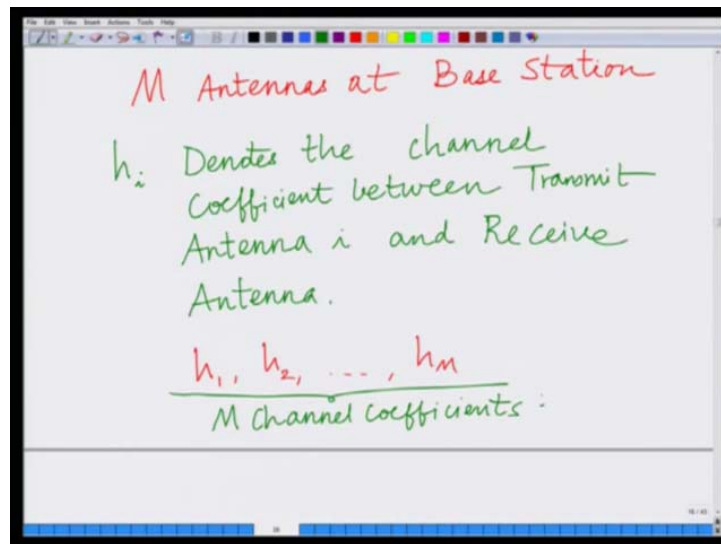 File Edit View Insert Actions Tools Help
B I
M Antennas at Base Station
hᵢ Denotes the channel
Coefficient between Transmit
Antenna i and Receive
Antenna.
h₁, h₂, ...., hM
M Channel Coefficients :